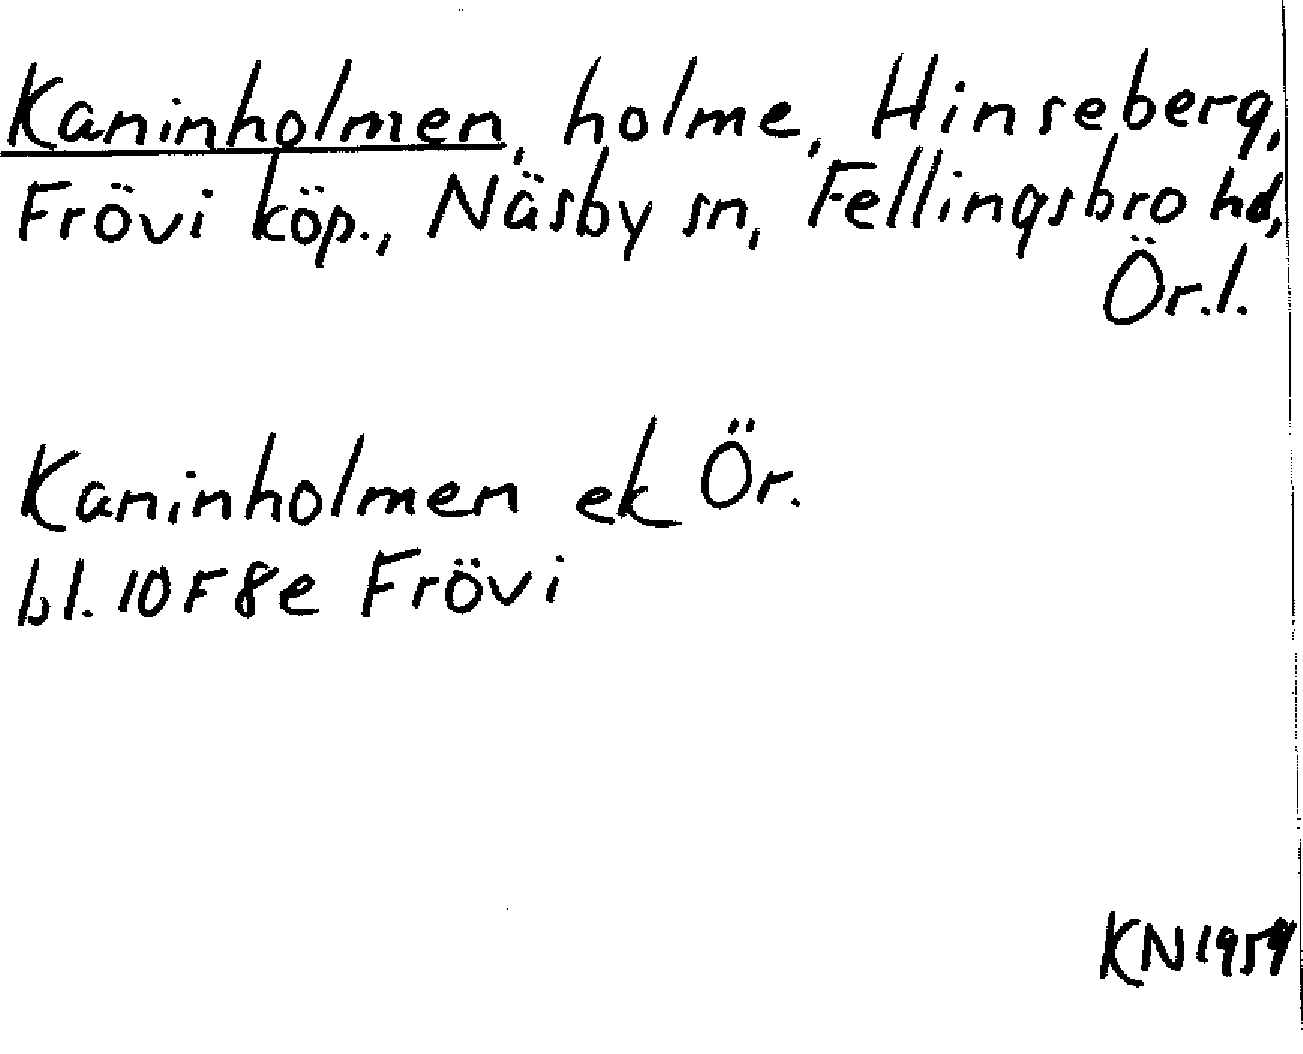 Kaninholmen, holme, Hinseberg,
Frövi köp., Näsby sn, Fellingsbro hd,
Ör.l.
Kaninholmen ek Ör.
bl. 10F8e Frövi
KN 1959